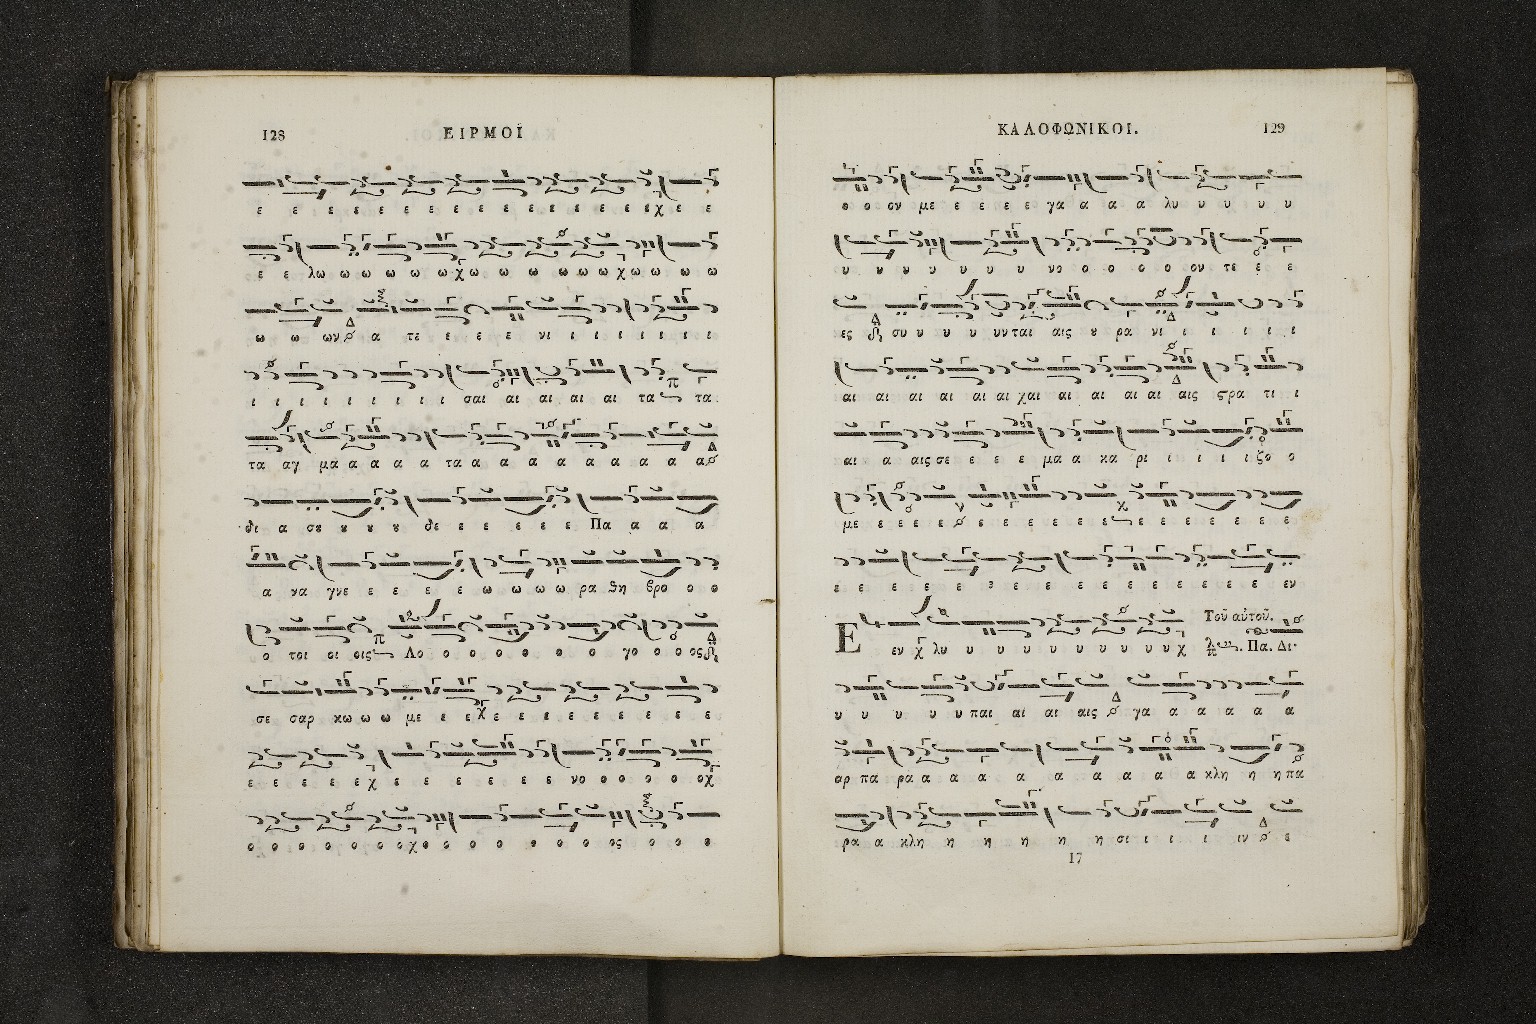 128 ΕΙΡΜΟῚ
ε ε ε ε ε ε ε ε ε ε ε ε ε ε ε ε εχ ε ε
ε ε λω ω ω ω ω ω χω ω ω ω ω ω χω ω ω ω
ω ω ων α τε ε ε ε νι ι ι ι ι ι ι
ι ι ι ι ι ι ι ι ι σαι αι αι αι αι τα τα
τα αγ μα α α α α τα α α α α α α α α α
δι α σου ου ου ου δε ε ε ε ε ε Πα α α α
α να γνε ε ε ε ε ω ω ω ω ρα ϑη βρο ο ο
ο τοι οι οις Λο ο ο ο ο ο ο ο γο ο ο ος
σε σαρ κω ω ω με ε ε χ ε ε ε ε ε ε ε ε ε
ε ε ε ε ε χ ε ε ε ε ε ε ε νο ο ο ο ο οχ
ο ο ο ο ο ο ο ο χο ο ο ο ο ο ο ο ος ο ο ο
ΚΑΛΟΦΩΝΙΚΟΙ. 129
ο ο ον με ε ε ε ε γα α α α λυ υ υ υ υ
υ υ υ υ υ υ υ νο ο ο ο ο ον τε ε ε
ες συ υ υ υ υνται αις ου ρα νι ι ι ι ι ι
αι αι αι αι αι αι χαι αι αι αι αι αις ϛρα τι ι
αι α αις σε ε ε ε μα α κα ρι ι ι ι ι ζο ο
με ε ε ε ε ε ε ε ε ε ε ε ε ε ε ε ε ε
ε ε ε ε ε ε ε ε ε ε ε ε ε ε ε ε εν
Τοῦ αὐτοῦ.
Ε εν χ λυ υ υ υ υ υ υ υ υ υ υ χ Πα. Δι·
υ υ υ υ υ παι αι αι αις γα α α α α α
αρ πα ρα α α α α α α α α α κλη η η πα
ρα α κλη η η η η η σι ι ι ι ιν ε
17